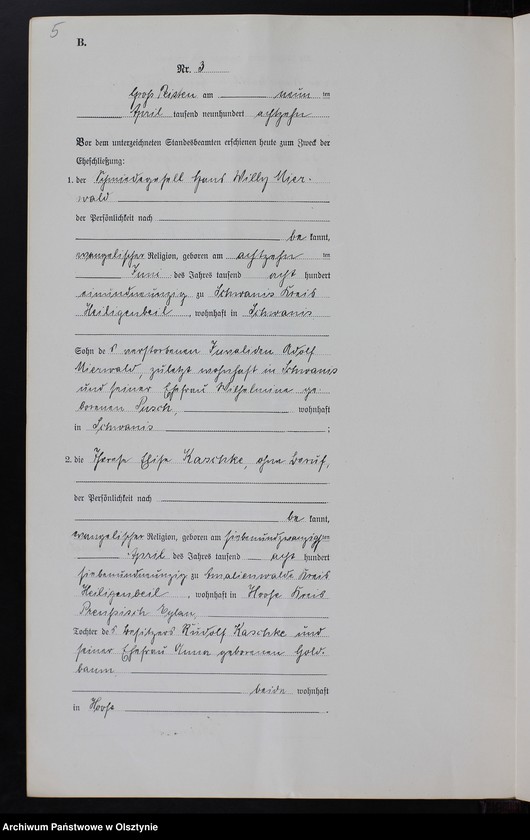 5
B.
Nr. 3
Groß Peisten am neun ten
April tausend neunhundert achtzehn
Vor dem unterzeichneten Standesbeamten erschienen heute zum Zweck der
Eheschließung:
1. der Schmiedegesell Hans Willy
wald
der Persönlichkeit nach
be kannt,
evangelischer Religion, geboren am achtzehn ten
Juni des Jahres tausend acht hundert
einundneunzig zu Schwanis Kreis
Heiligenbeil, wohnhaft in Schwanis
Sohn des verstorbenen Invaliden Adolf
zuletzt wohnhaft in Schwanis
und seiner Ehefrau Wilhelmine ge-
borenen wohnhaft
in Schwanis ;
2. die Therese Elise Kaschke, ohne Beruf,
der Persönlichkeit nach
be kannt,
evangelischer Religion, geboren am siebenundzwanzigsten
April des Jahres tausend acht hundert
siebenundneunzig zu Amalienwalde Kreis
Heiligenbeil, wohnhaft in Hoofe Kreis
Preußisch Eylau
Tochter des Besitzers Rudolf Kaschke und
seiner Ehefrau Anna geborenen Gold-
baum
beide wohnhaft
in Hoofe .
Archiwum Państwowe w Olsztynie